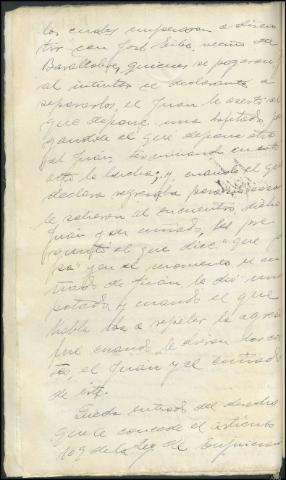 los cuales empezaron a discu-
tir con José vecino de
Barallobre, quienes se pegaron,
al intentar el declarante a
separarlos, el Juan le asestó al
que depone una bofetada,
el que depone otra
al Juan, terminando en este
acto la lucha; y cuando el que
declara regresaba para su casa
le salieron al encuentro dicho
Juan y su cuñado, les pre-
guntó el que dice que
y en el momento el cu-
ñado de Juan le dió una
patada y cuando el que
habla iba a repeler la agre-
sión cuando le dieron los
el Juan y el cuñado
de éste.
Queda enterado del derecho
que le concede el artículo
109 de la Ley de Enjuicia